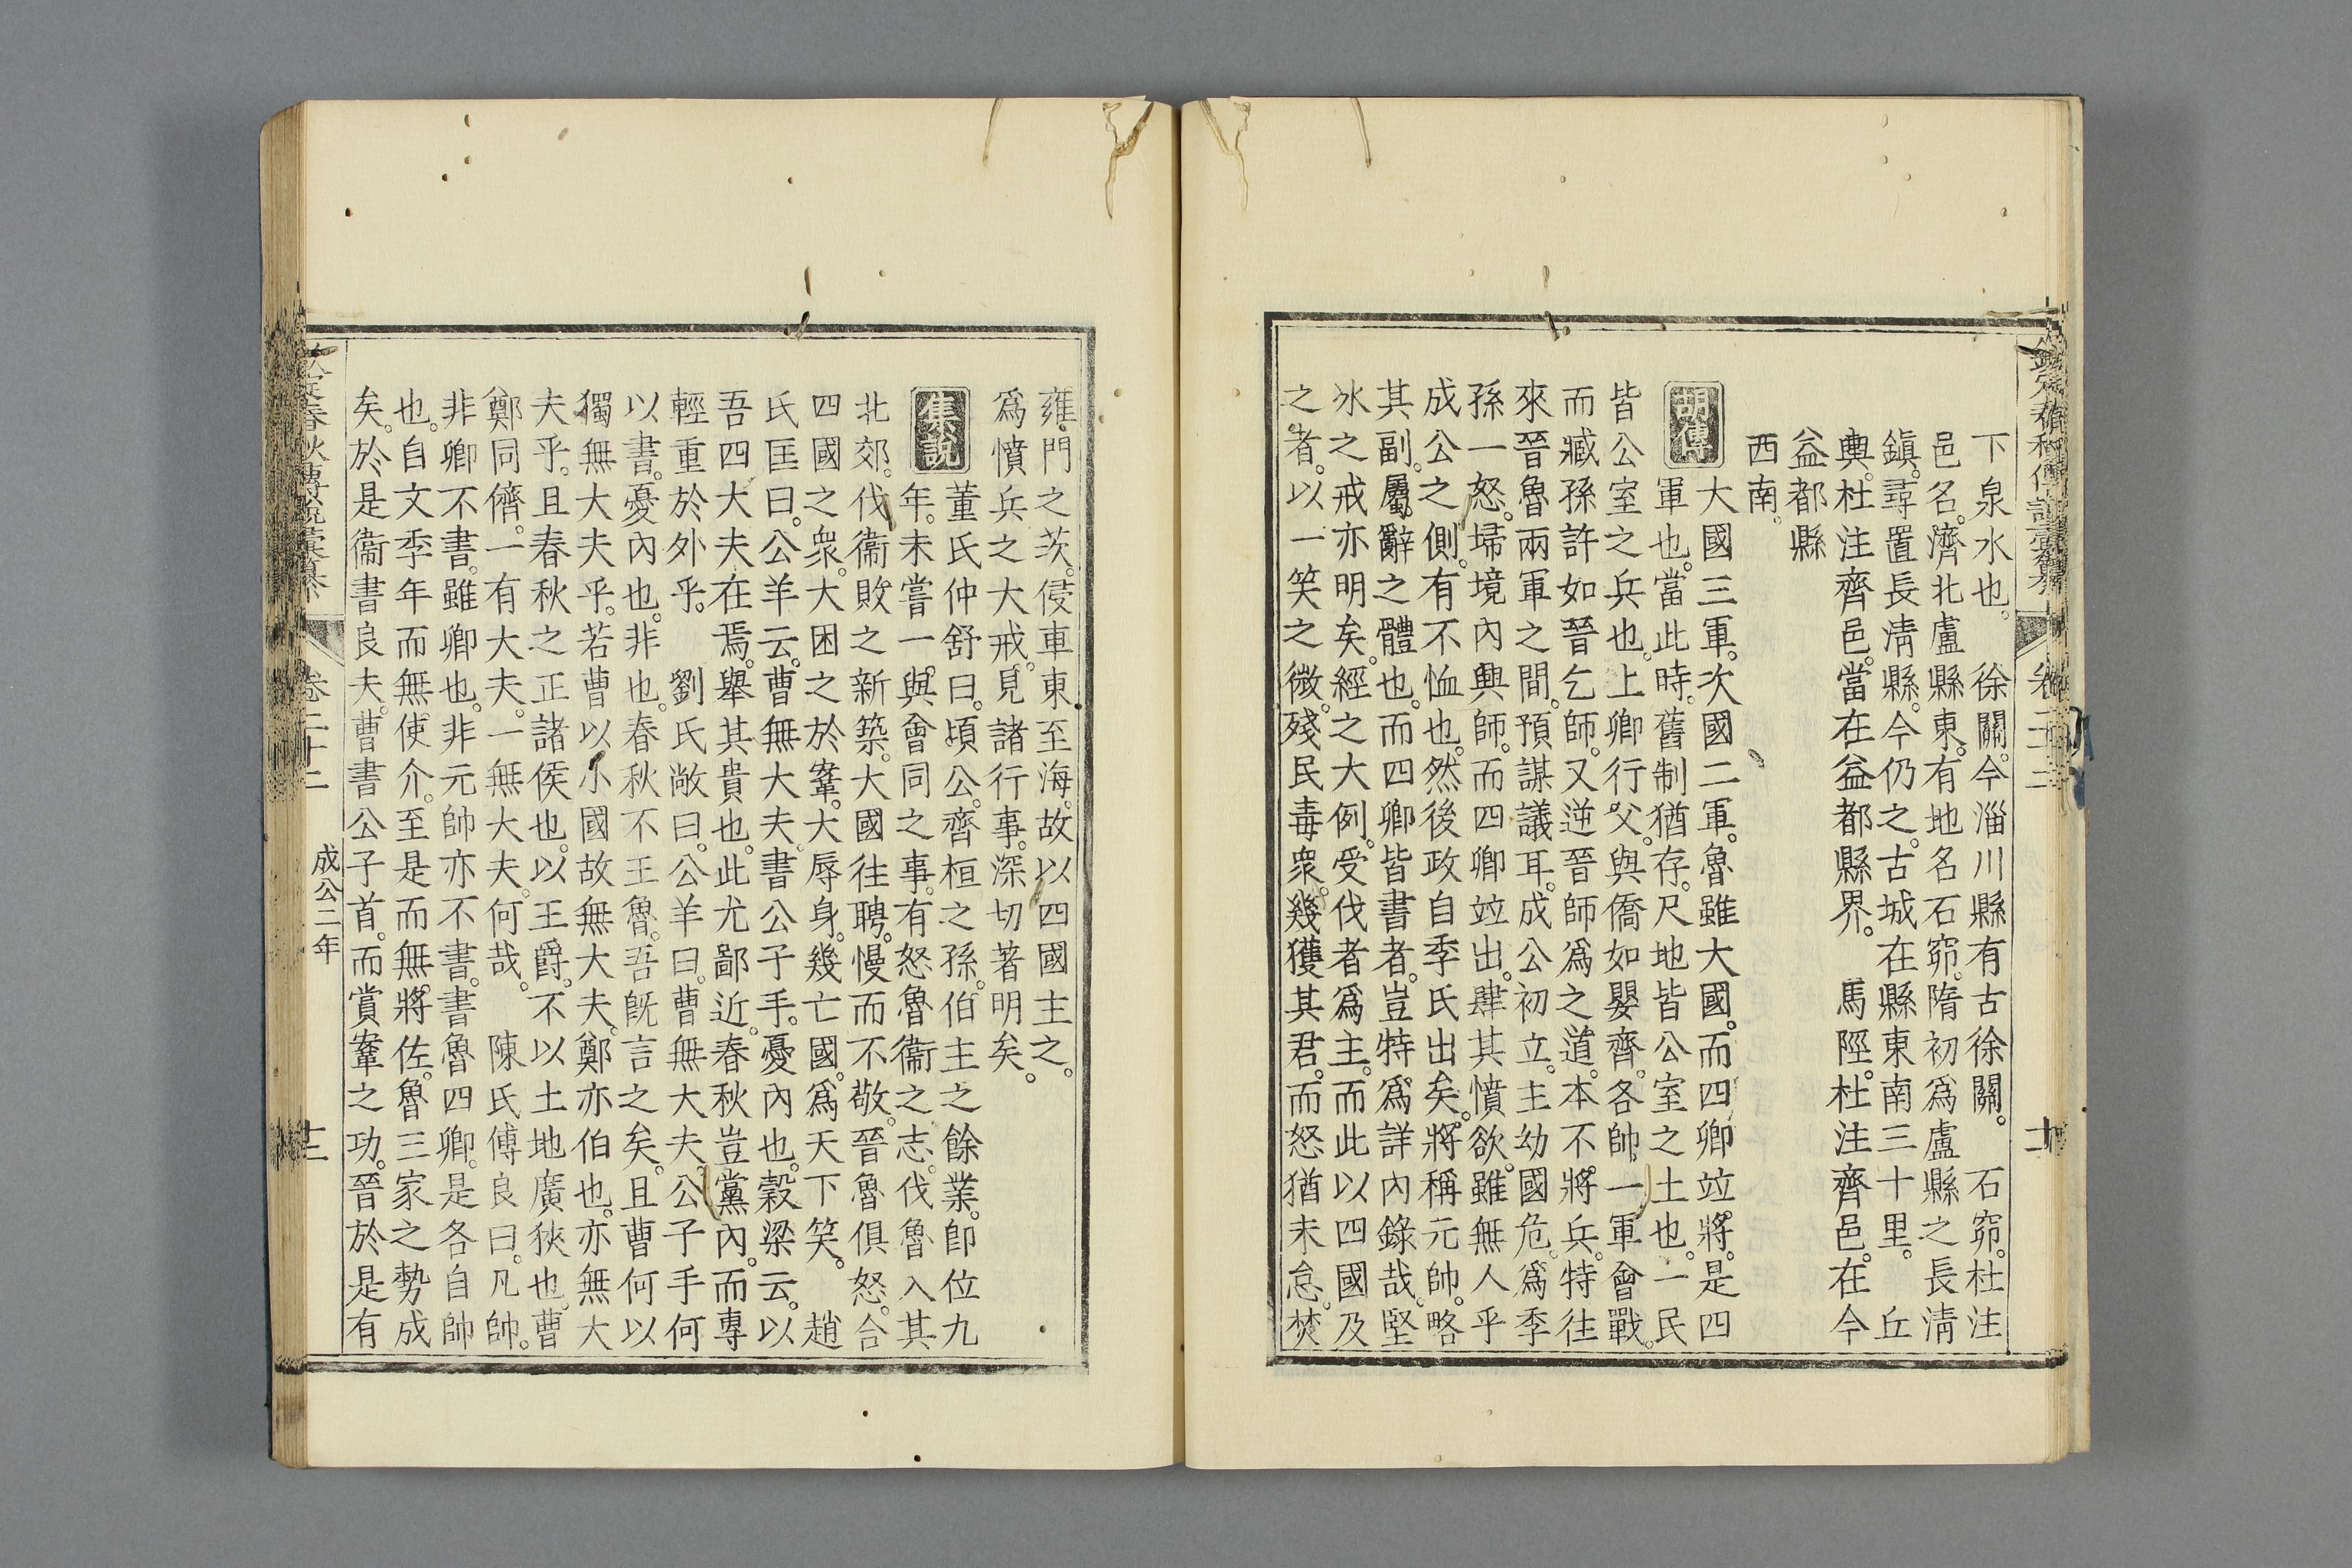 下泉水也。　徐關。今淄川縣有古徐關。　石窌。杜注
邑名。濟北盧縣東。有地名石窌。隋初爲盧縣之長淸
鎭。尋置長淸縣。今仍之。古城在縣東南三十里。　丘
輿。杜注齊邑。當在益都縣界。　馬陘。杜注齊邑。在今
益都縣
西南。
胡傳
大國三軍。次國二軍。魯雖大國。而四卿竝將。是四
軍也。當此時。舊制猶存。尺地皆公室之土也。一民
皆公室之兵也。上卿行父。與僑如嬰齊。各帥一軍會戰。
而臧孫許如晉乞師。又逆晉師爲之道。本不將兵。特往
來晉魯兩軍之間。預謀議耳。成公初立。主幼國危。爲季
孫一怒。埽境內興師。而四卿竝出。肆其憤欲。雖無人乎
成公之側。有不恤也。然後政自季氏出矣。將稱元帥。略
其副。屬辭之體也。而四卿皆書者。豈特爲詳內錄哉。堅
冰之戒亦明矣。經之大例。受伐者爲主。而此以四國及
之者。以一笑之微。殘民毒衆。幾獲其君。而怒猶未怠。焚
雍門之茨。侵車東至海。故以四國主之。
爲憤兵之大戒。見諸行事。深切著明矣。
集說
董氏仲舒曰。頃公。齊桓之孫。伯主之餘業。卽位九
年。未嘗一。與會同之事。有怒魯衞之志。伐魯入其
北郊。伐衞敗之新築。大國往聘。慢而不敬。晉魯俱怒。合
四國之衆。大困之於鞌。大辱身。幾亡國。爲天下笑。　趙
氏匡曰。公羊云。曹無大夫。書公子手。憂內也。穀梁云。以
吾四大夫在焉。舉其貴也。此尤鄙近。春秋豈黨內。而專
輕重於外乎。　劉氏敞曰。公羊曰。曹無大夫。公子手何
以書。憂內也。非也。春秋不王魯。吾旣言之矣。且曹何以
獨無大夫乎。若曹以小國故無大夫。鄭亦伯也。亦無大
夫乎。且春秋之正諸侯也。以王爵。不以土地廣狹也。曹
鄭同儕。一有大夫。一無大夫。何哉。　陳氏傅良曰。凡帥。
非卿不書。雖卿也。非元帥亦不書。書魯四卿。是各自帥
也。自文季年而無使介。至是而無將佐。魯三家之勢成
矣。於是衞書良夫。曹書公子首。而賞鞌之功。晉於是有
卷二十二
成公二年